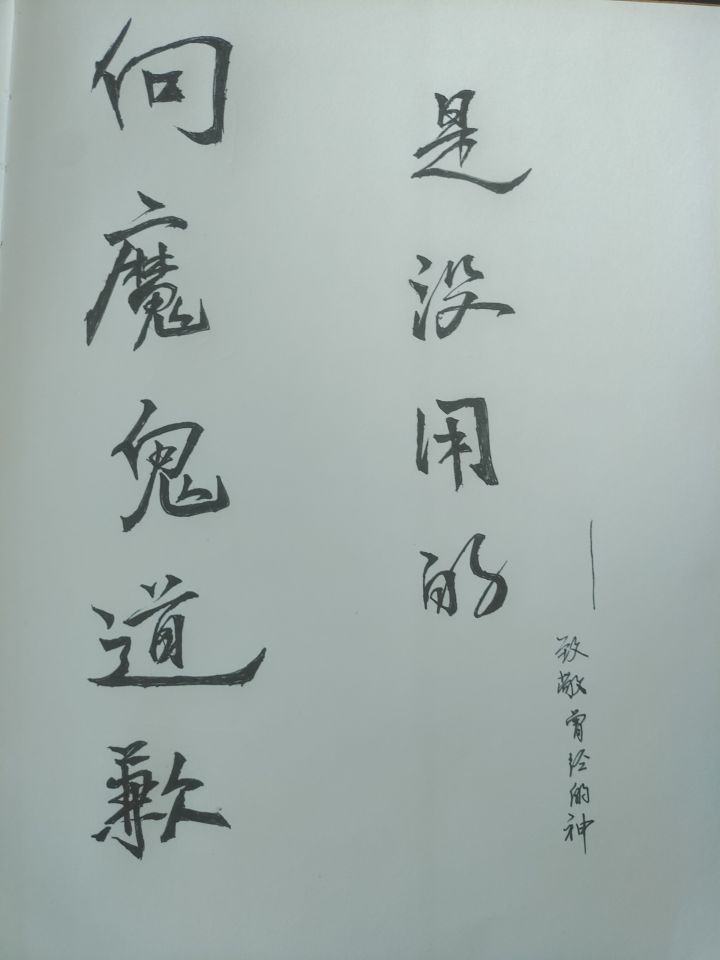 向魔鬼道歉
是没用的
—致敬曾经的神